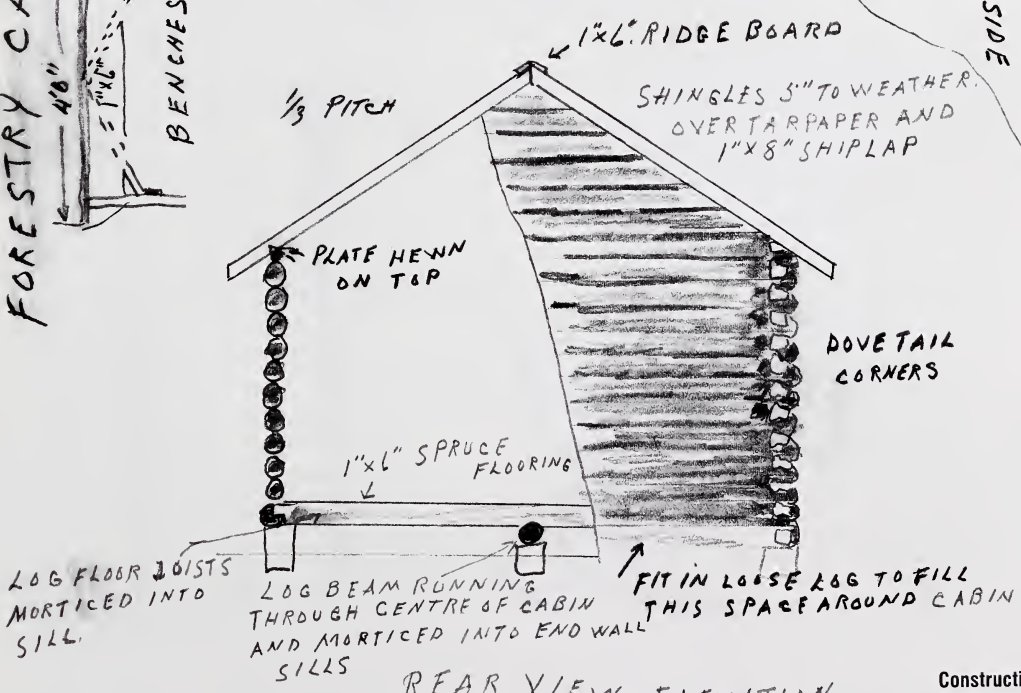 FORESTRY CA
4'0"
1"x6"
BENCHES
SIDE
1"x6" RIDGE BOARD
1/3 PITCH
SHINGLES 5" TO WEATHER.
OVER TARPAPER AND
1"x8" SHIPLAP
PLATE HEWN
ON TOP
DOVETAIL
CORNERS
1"x6" SPRUCE
FLOORING
LOG FLOOR JOISTS
MORTICED INTO
SILL.
LOG BEAM RUNNING
THROUGH CENTRE OF CABIN
AND MORTICED INTO END WALL
SILLS
FIT IN LOOSE LOG TO FILL
THIS SPACE AROUND CABIN
REAR VIEW
Constructi